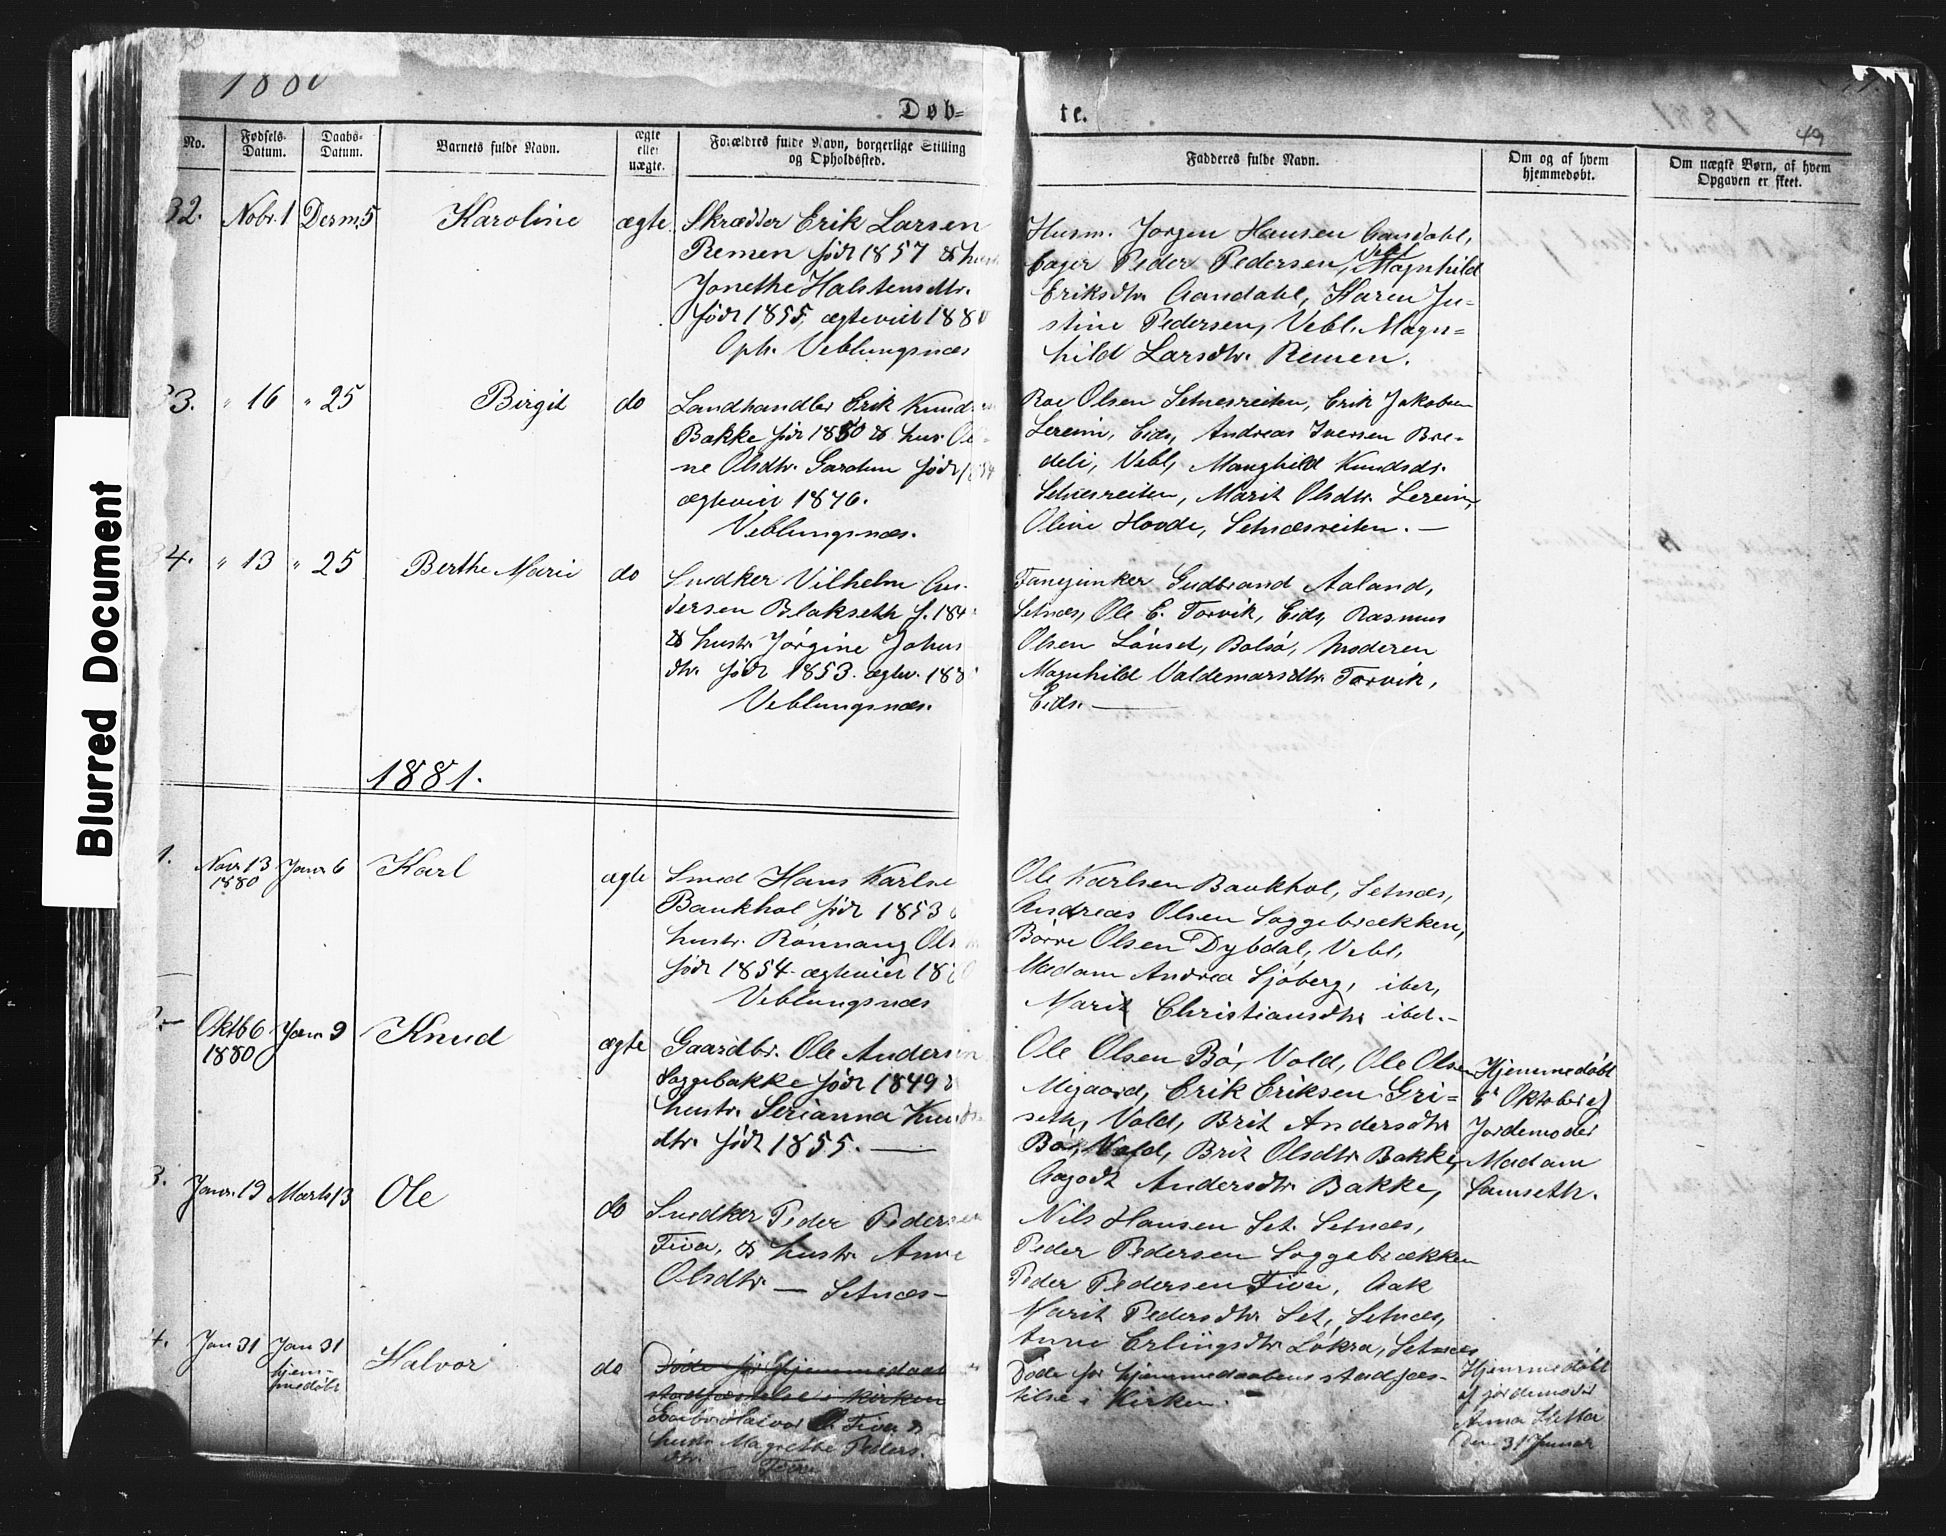 Blurred Document
1880
Døb-
te.
1881
49
No.
Fødsels-
Datum.
Daabs-
Datum.
Barnets fulde Navn.
ægte
eller
uægte.
Forældres fulde Navn, borgerlige Stilling
og Opholdssted.
Faddereš fulde Navn.
Om og af hvem
hjemmedøbt.
Om uægte Børn, af hvem
Opgaven er skeet.
32. Nobr. 1 Decm. 5 Karoline ægte
Skrædder Erik Larsen
Remen født 1857 & hust
Jonethe Halstensdtr.
født 1855, ægteviet 1880
Oph. Veblungsnæs
Husm. Jørgen Hansen Aandahl,
Bager Peder Pedersen, Vebl. Magnhild
Eriksdtr. Aandahl, Karen Ju-
stine Pedersen, Vebl. Magn-
hild Larsdtr. Remen.
33. " 16 " 25 Birgit do
Landhandler Erik Knuds
Bakke født 1850 & hus. Oli-
ne Olsdtr. født
ægteviet 1876.
Veblungsnæs.
Roe Olsen Setnesreiten, Erik Jakobsen
Lereim, Eids, Andreas Iversen Bre-
deli, Vebl, Manghild Knudsdr.
Setnesreiten, Marit Olsdtr. Lereim,
Oline Hovde, Setnæsreiten. —
34. " 13 " 25 Berthe Marie do
Snedker Vilhelm An-
dersen Blakseth f. 184
& hustr. Jørgine Johns
dtr. født 1853. ægtev. 188
Veblungsnæs.
Fanejunker Gudbrand Aaland,
Setnæs, Ole E. Torvik, Eids, Rasmus
Olsen Lønset, Bolsø, Moderen
Magnhild Valdemarsdtr. Torvik,
Eids. —
1881.
1. Novr. 13 Janr. 6 Karl ægte
1880
Smed Hans Karlse
Baukhol født 1853
hustr. Rønnaug Ols
født 1854. ægteviet 18
Veblungsnæs
Ole Karlsen Baukhol, Setnæs,
Andreas Olsen Soggebrækken,
Børre Olsen Dybdal, Vebl,
Madam Andrea Sjøberg, ibet,
Marit Christiansdtr. ibet.-
2. Oktb 6 Janr 9 Knud ægte
1880
Gaardbr. Ole Andersen
Soggebakke født 1849 &
hustr. Serianna Knuds
dtr. født 1855. —
Ole Olsen Bø, Vold, Ole Olsen
Megaard, Erik Eriksen Gri-
seth, Vold, Brit Andersdtr
Bø, Vold, Brit Olsdtr. Bakke,
Aagodt Andersdtr. Bakke,
Hjemmedøbt
6 Oktober af
Jordemoder
Madam
Samseth.
3. Janr. 19 Marts 13 Ole do
Snedker Peder Pedersen
Fiva, & hustr. Anne
Olsdtr. — Setnæs -
Nils Hansen Set. Setnæs,
Peder Pedersen Soggebrækken
Peder Pedersen Fiva, Aak
Marit Pedersdtr. Set, Setnæs,
Anne Erlingsdtr. Løkra, Setnæs
4. Jan 31 Jan 31 Halvor do
hjem-
medøbt
Døde før Hjemmedaab
stadfæstelse i Kirken
Halvor O. Fiva &
hustr. Magrethe Peders.
dtr. Fiva
Døde før hjemmedaabens stadfæs-
telse i Kirken.
Hjemmedøbt
af jordemoder
Anna Sletta
den 31 Januar